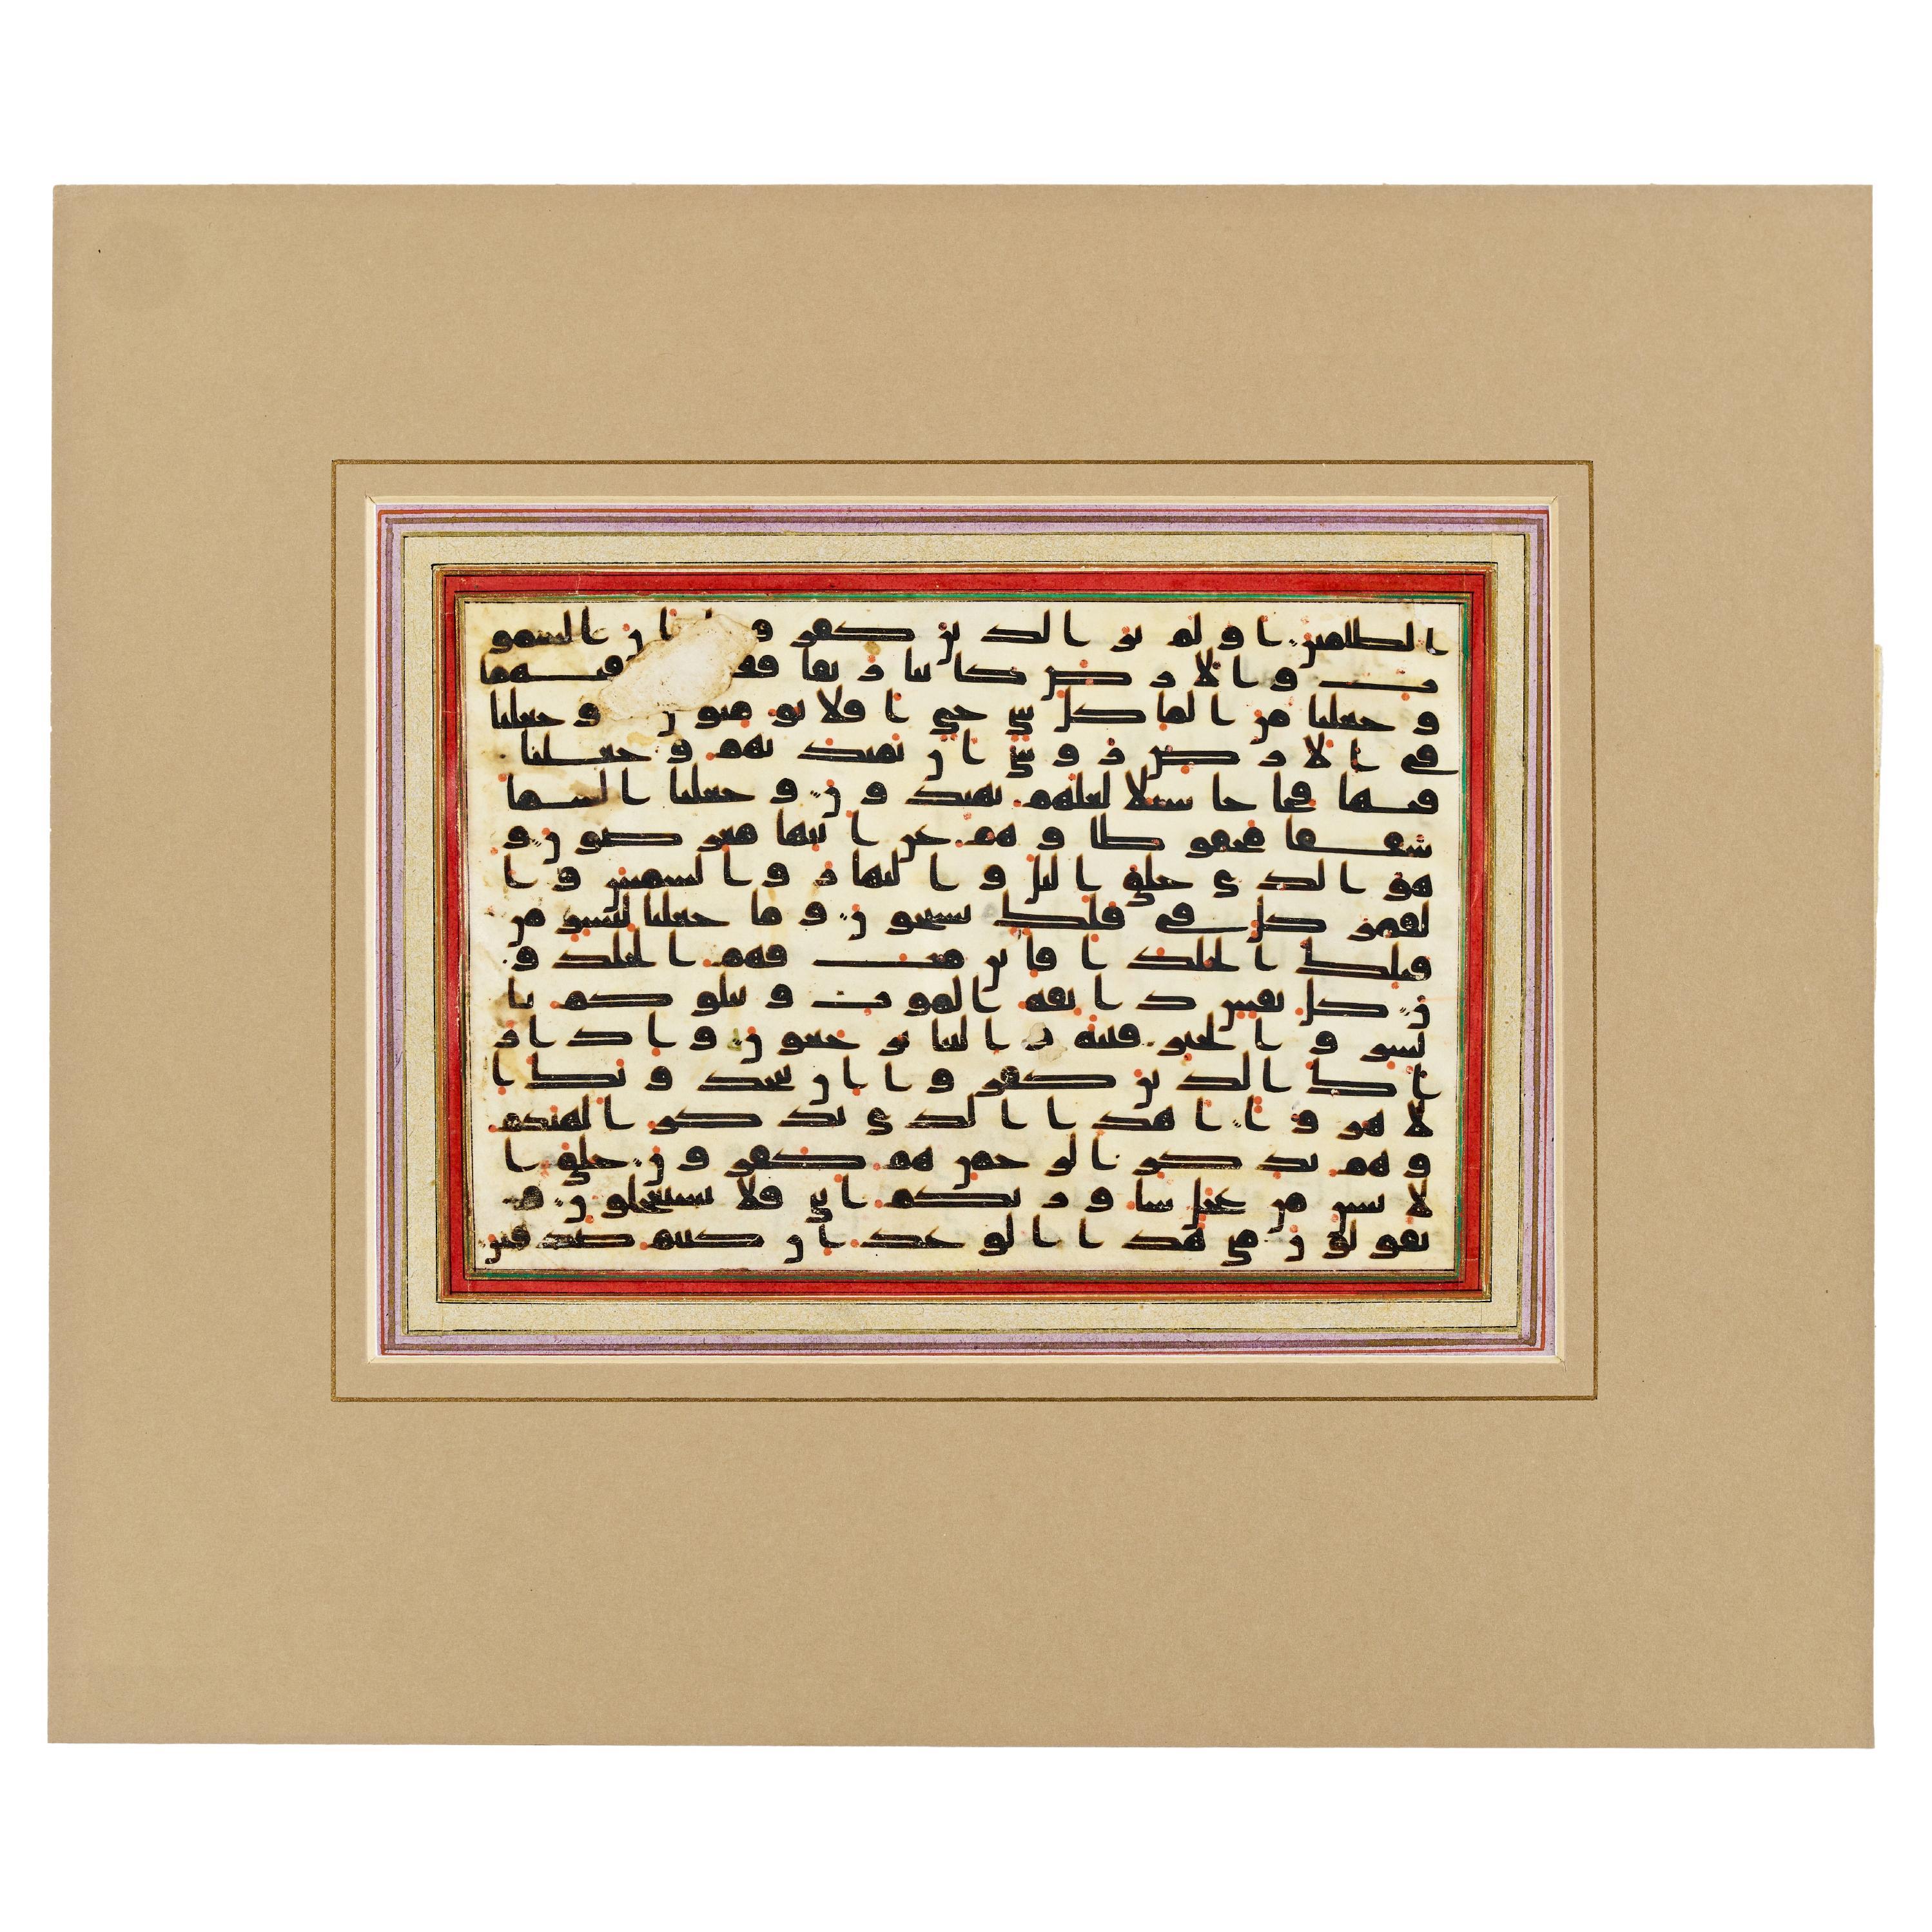 الظلمين او لم ير الذين كفروا ان السمو
ت والارض كانتا رتقا ففتقنهما
وجعلنا من الما كل شي حي افلا يومنون وجعلنا
في الارض روسي ان تميد بهم وجعلنا
فيها فجاجا سبلا لعلهم يهتدون وجعلنا السما
سقفا محفوظا وهم عن ايتها معرضون و
هو الذي خلق اليل والنهار والشمس وا
لقمر كل في فلك يسبحون وما جعلنا لبشر من
قبلك الخلد افاين مت فهم الخلدو
ن كل نفس ذايقه الموت ونبلوكم با
لشر والخير فتنه والينا ترجعون واذا ر
اك الذين كفروا ان يتخذونك ا
لا هزوا اهذا الذي يذكر الهتكم
وهم بذكر الرحمن هم كفرون خلق ا
لانسن من عجل ساوريكم ايتي فلا تستعجلون و
يقولون متى هذا الوعد ان كنتم صدقين